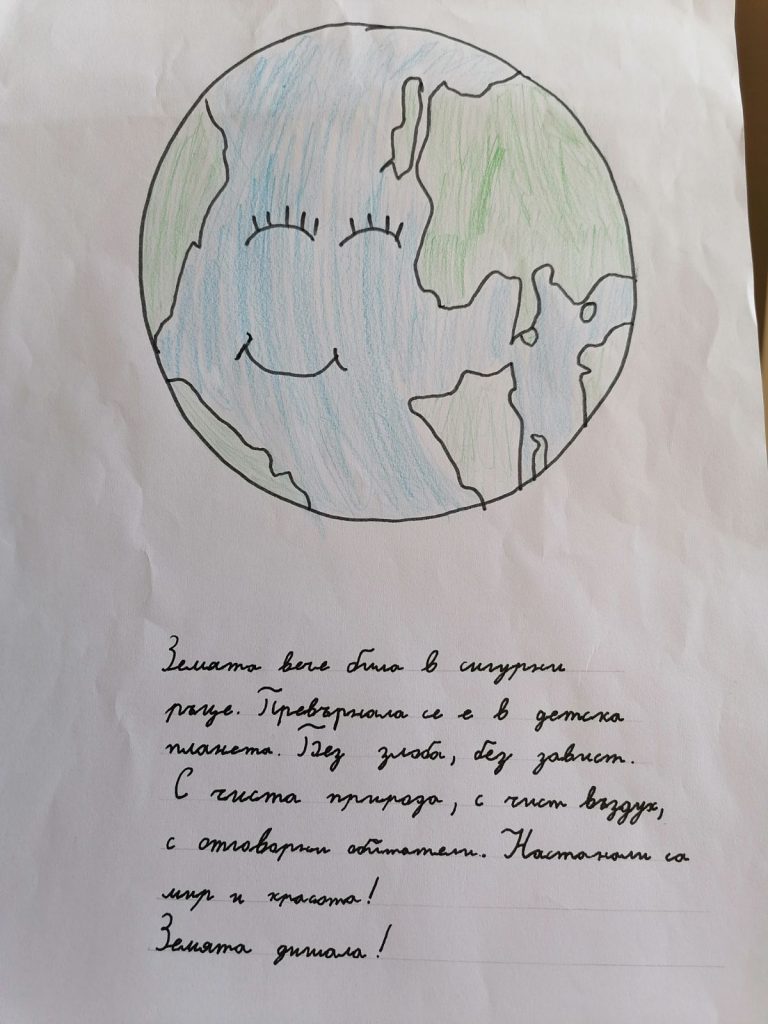 Земята вече била в сигурни
ръце. Превърнала се е в детска
планета. Без злоба, без завист.
С чиста природа, с чист въздух,
с отговорни обитатели. Настанали са
мир и красота!
Земята дишала!